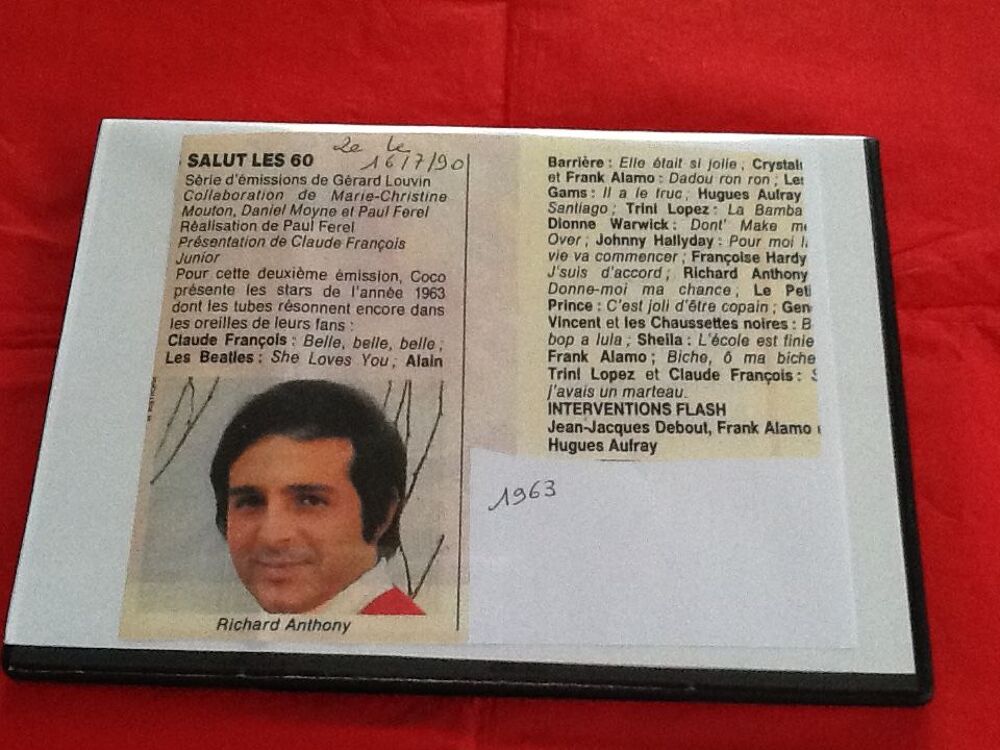 SALUT LES 60
2e le
16/7/90
Série d'émissions de Gérard Louvin
Collaboration de Marie-Christine
Mouton, Daniel Moyne et Paul Ferel
Réalisation de Paul Ferel
Présentation de Claude François
Junior
Pour cette deuxième émission, Coco
présente les stars de l'année 1963
dont les tubes résonnent encore dans
les oreilles de leurs fans :
Claude François : Belle, belle, belle ;
Les Beatles : She Loves You ; Alain
Richard Anthony
Barrière : Elle était si jolie ; Crystals
et Frank Alamo : Dadou ron ron ; Les
Gams : Il a le truc ; Hugues Aufray
Santiago ; Trini Lopez : La Bamba
Dionne Warwick : Dont' Make me
Over ; Johnny Hallyday : Pour moi la
vie va commencer ; Françoise Hardy
J'suis d'accord ; Richard Anthony
Donne-moi ma chance ; Le Peti
Prince : C'est joli d'être copain ; Gen
Vincent et les Chaussettes noires : B
bop a lula ; Sheila : L'école est finie
Frank Alamo ; Biche, ô ma biche
Trini Lopez et Claude François : S
j'avais un marteau.
INTERVENTIONS FLASH
Jean-Jacques Debout, Frank Alamo
Hugues Aufray
1963